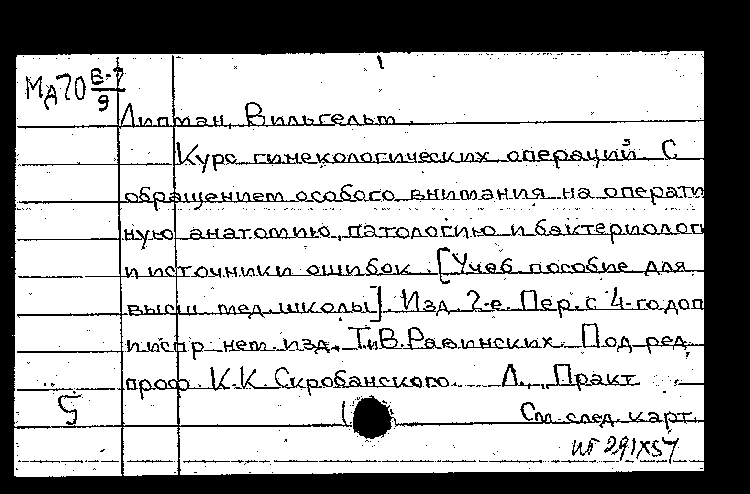 Мд70 В-7
9
Липман, Вильгельм.
Курс гинекологических операций. С
обращением особого внимания на операти
ную анатомию, патологию и бактериолог
и источники ошибок. [Учеб. пособие для
высш. мед. школы]. Изд. 2-е. Пер. с 4-го доп
и испр. нем. изд. Т. и В. Равинских. Под ред.
проф. К.К. Скробанского. Л., „Практ
5
См. след. карт.